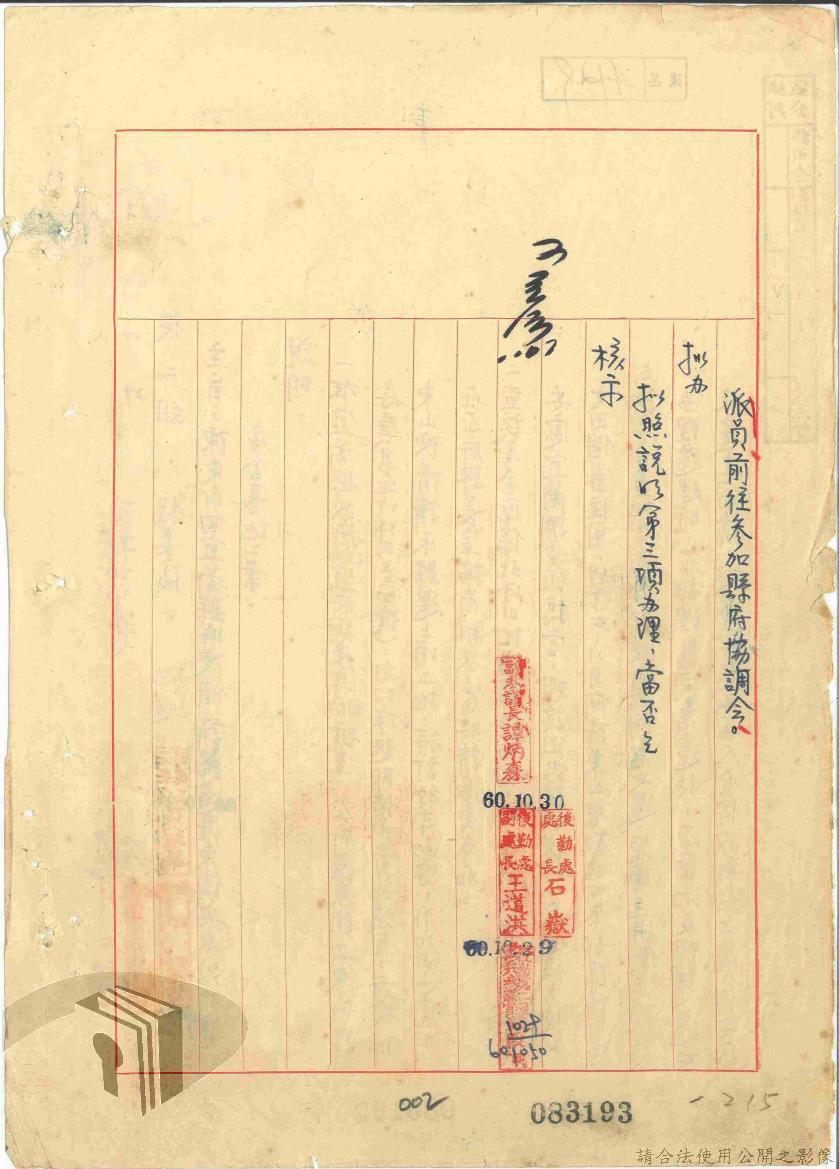 派員前往參加縣府協調会。
拟办
拟照説明第三項办理、當否乞
核示
後勤處
處長 石嶽
副參謀長譚炳森
60.10.30
後勤處
副處長 王道洪
60.10.29
1029
002
083193
-215
請合法使用公開之影像